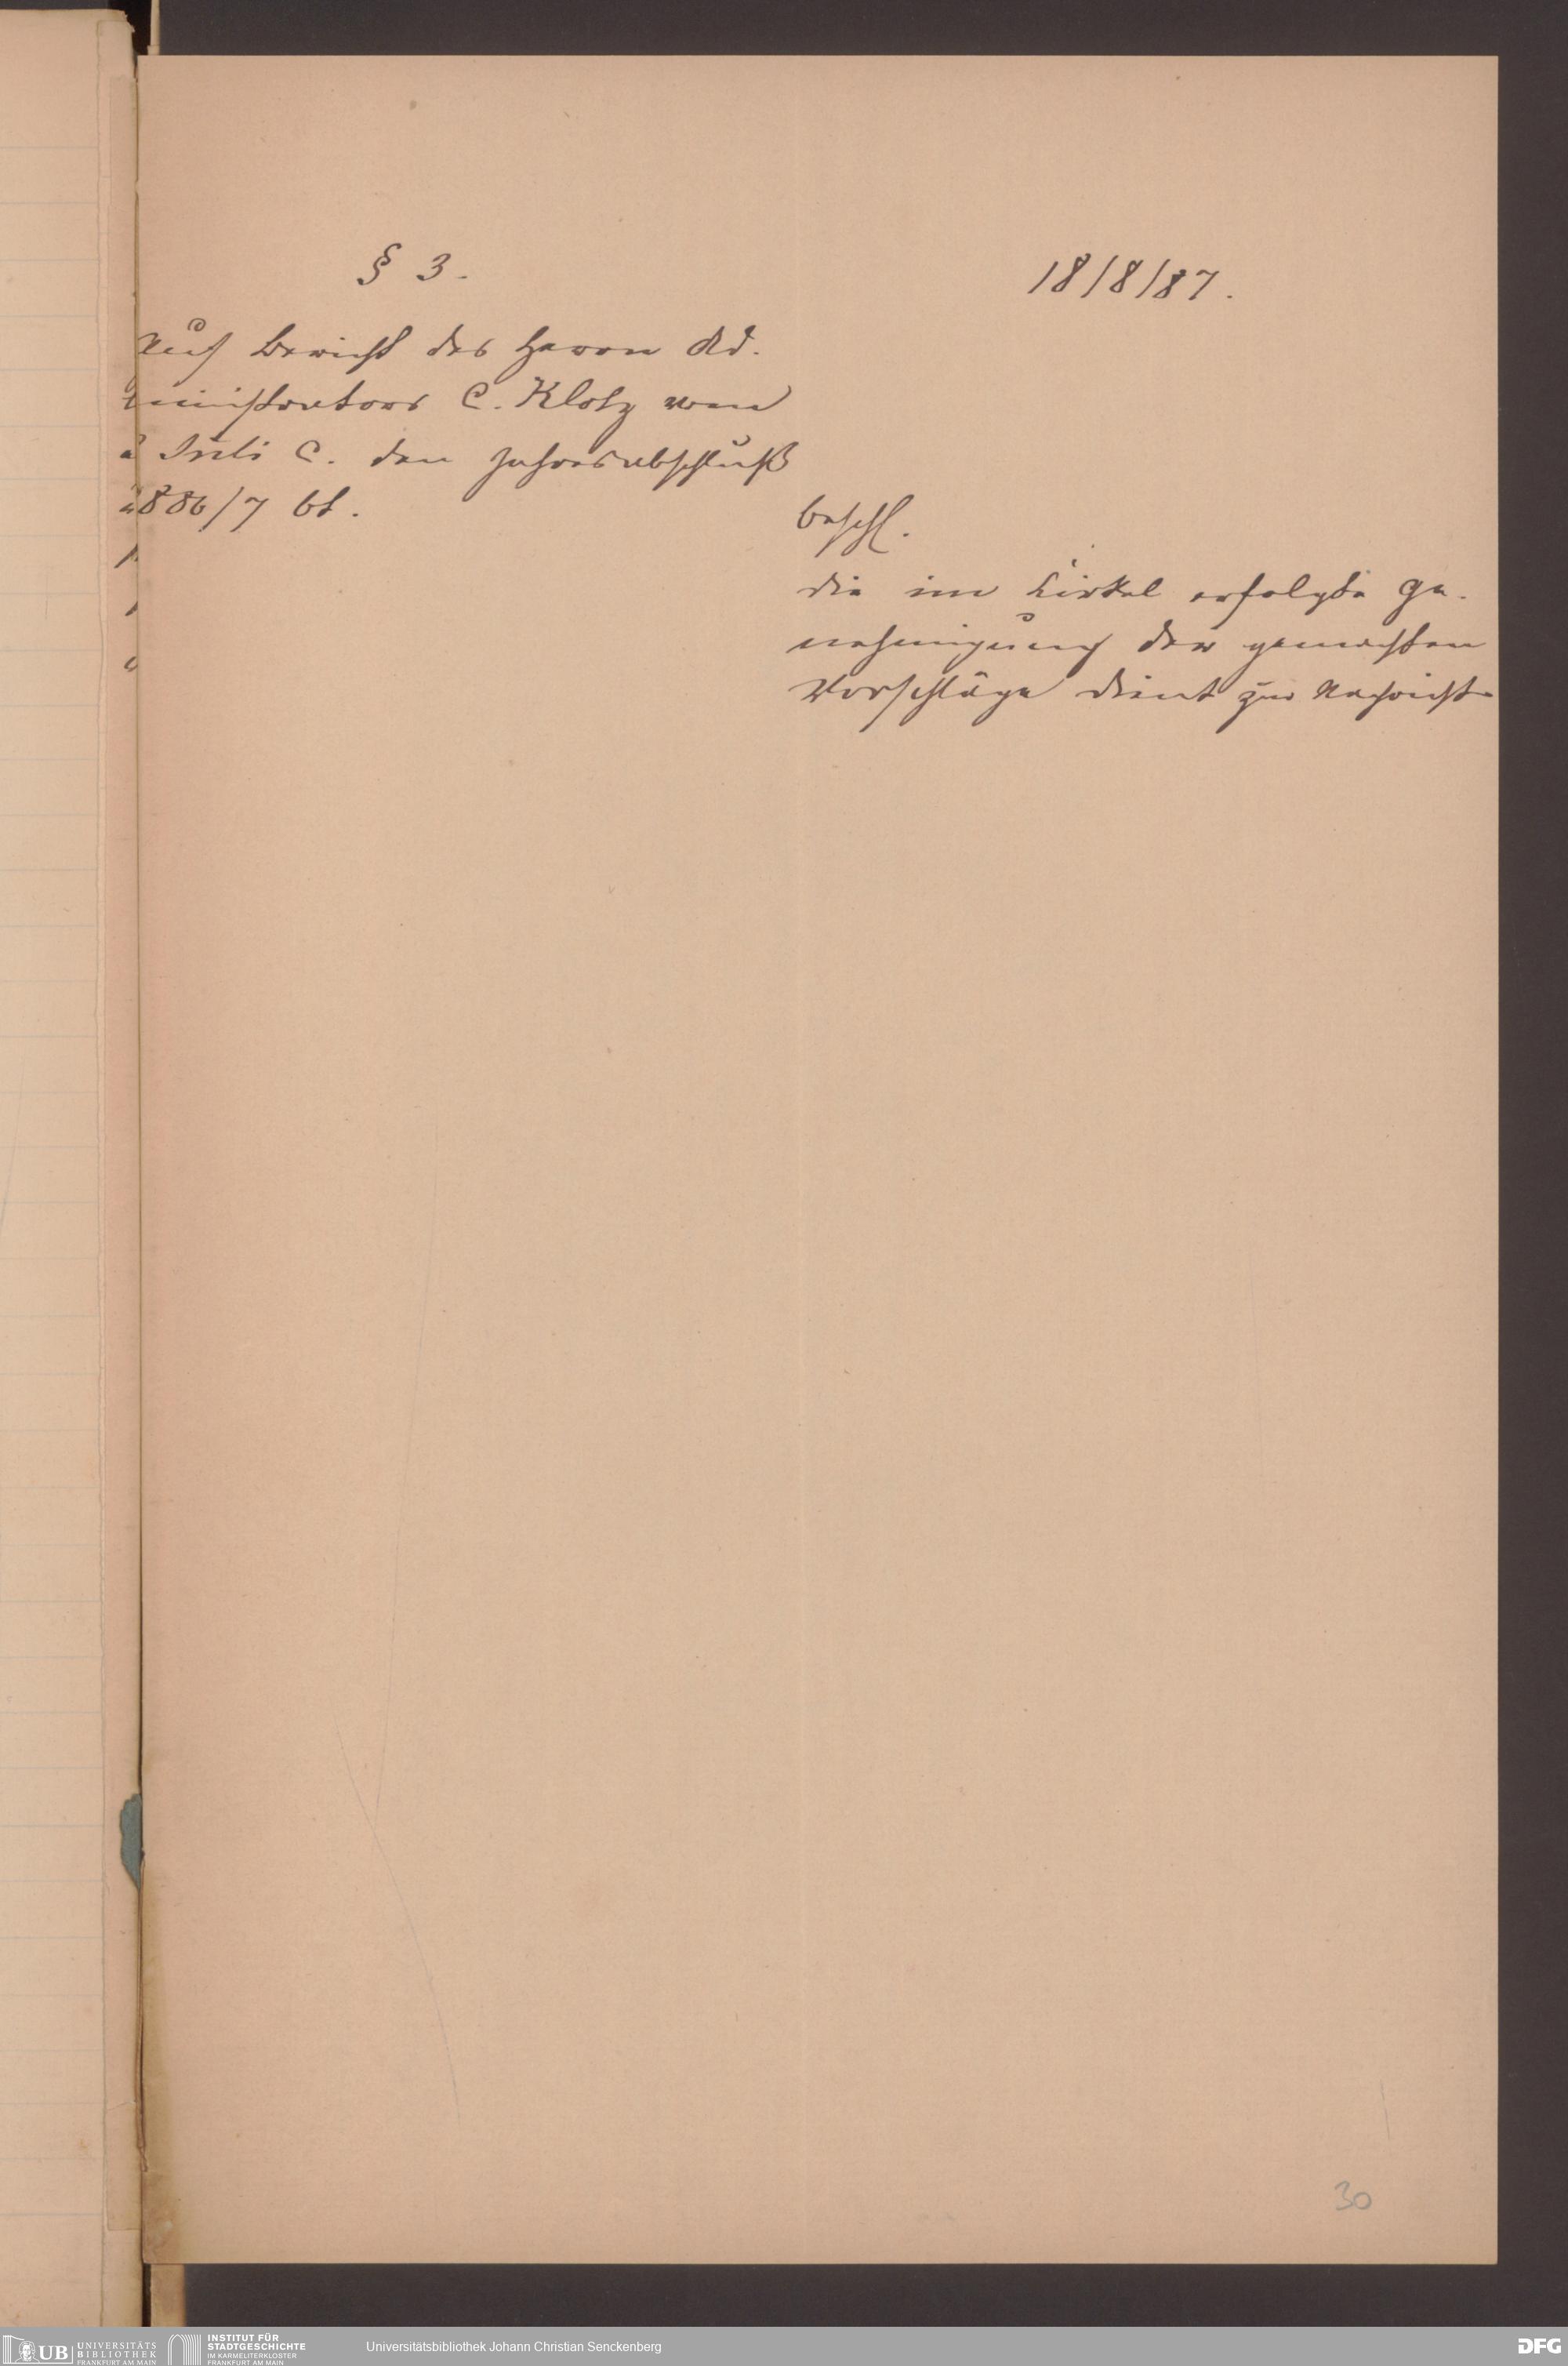 § 3.
18/8/87.
Auf Bericht des Herrn Ad-
ministrators C. Klotz vom
Juli c. den Jahresabschluß
1886/7 bt.
beschl.
die im Cirkel erfolgte Ge-
nehmigung der gemachten
Vorschläge dient zur Nachricht
30
UB
UNIVERSITÄTS
BIBLIOTHEK
FRANKFURT AM MAIN
INSTITUT FÜR
STADTGESCHICHTE
IM KARMELITERKLOSTER
FRANKFURT AM MAIN
Universitätsbibliothek Johann Christian Senckenberg
DFG